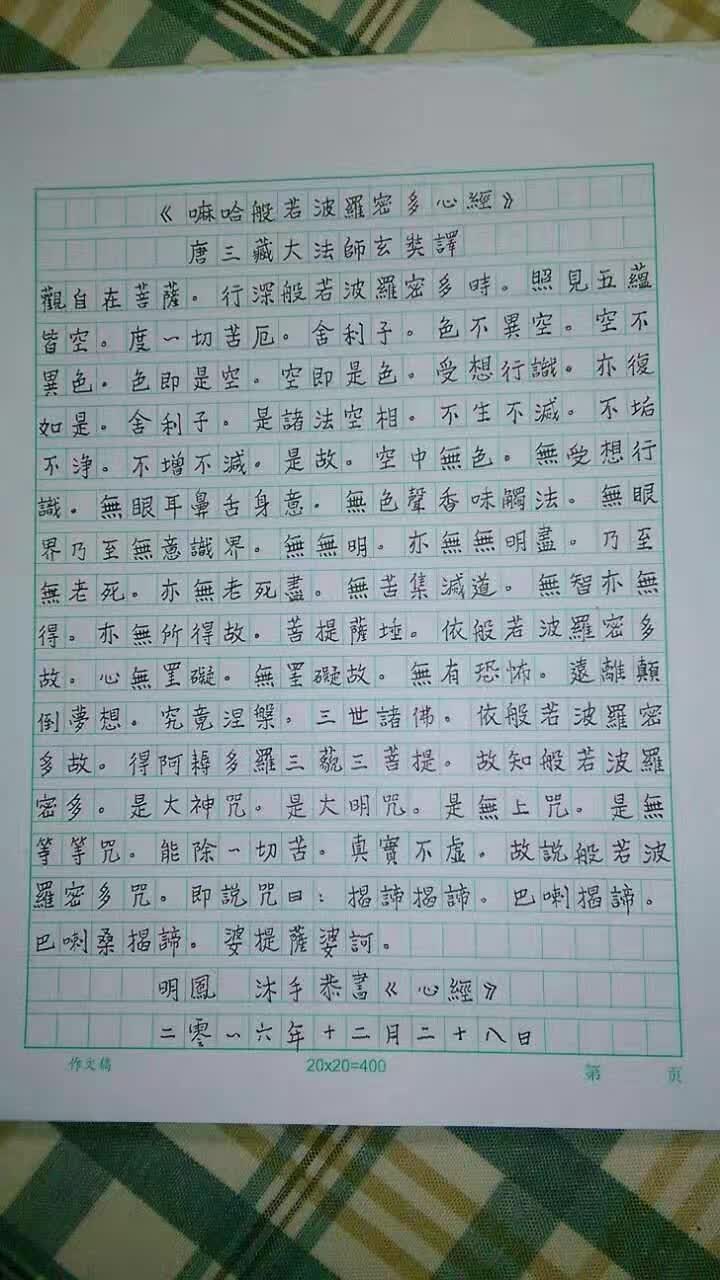 《嘛哈般若波羅密多心經》
唐三藏大法師玄奘譯
觀自在菩薩。行深般若波羅密多時。照見五蘊
皆空。度一切苦厄。舍利子。色不異空。空不
異色。色即是空。空即是色。受想行識。亦復
如是。舍利子。是諸法空相。不生不滅。不垢
不浄。不增不減。是故。空中無色。無受想行
識。無眼耳鼻舌身意。無色聲香味觸法。無眼
界乃至無意識界。無無明。亦無無明盡。乃至
無老死。亦無老死盡。無苦集滅道。無智亦無
得。亦無所得故。菩提薩埵。依般若波羅密多
故。心無罣礙。無罣礙故。無有恐怖。遠離顛
倒夢想。究竟涅槃。三世諸佛。依般若波羅密
多故。得阿耨多羅三藐三菩提。故知般若波羅
密多。是大神咒。是大明咒。是無上咒。是無
等等咒。能除一切苦。真實不虛。故說般若波
羅密多咒。即說咒曰：揭諦揭諦。巴喇揭諦。
巴喇桑揭諦。婆提薩婆訶。
明鳳 沐手恭書《心經》
二零一六年十二月二十八日
作文稿 20x20=400 第 页